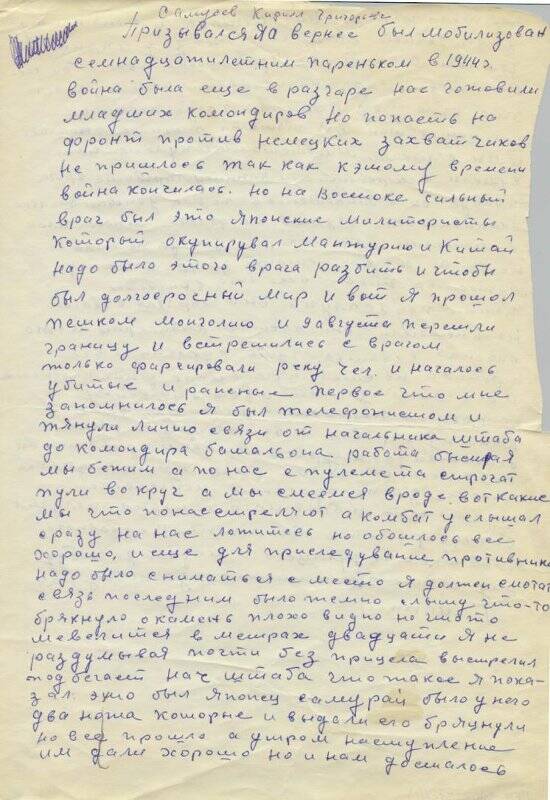 Самусев Кирилл Григорьевич
Призывался Я а вернее был мобилизован
семнадцатилетним пареньком в 1944 г.
война была еще в разгаре нас готовили
младших командиров но попасть на
фронт против немецких захватчиков
не пришлось так как к этому времени
война кончилась. но на Востоке сильный
враг был это Японские милитористы
который окупирувал Манжурию и Китай
надо было этого врага разбить и чтобы
был долгосрочный мир и вот Я прошол
пешком монголию и 9 августа перешли
границу и встретились с врагом
только фарсировали реку и началось
убитые и раненые первое что мне
запомнилось Я был телефонистом и
тянули линию связи от начальника штаба
до командира баталъона работа быстрая
мы бежим а по нас с пулемета строчат
пули вокруг а мы смеемся вроде. вот какие
мы что по нас стреляют а комбат услышал
сразу на нас ложитесь но обошлось все
хорошо, и еще для приследувание противника
надо было сниматься с место Я должен смотать
связь последним было темно слышу что-то
брякнуло о камень плохо видно но что-то
шевелится в метрах двадцати Я не
раздумывая почти без прицела выстрелил
подбегает нач штаба что такое Я пока-
зал. это был Японец самурай было у него
два ножа которые и выдали его бряцнули
но все прошло а утром наступление
им дали хорошо но и нам досталось